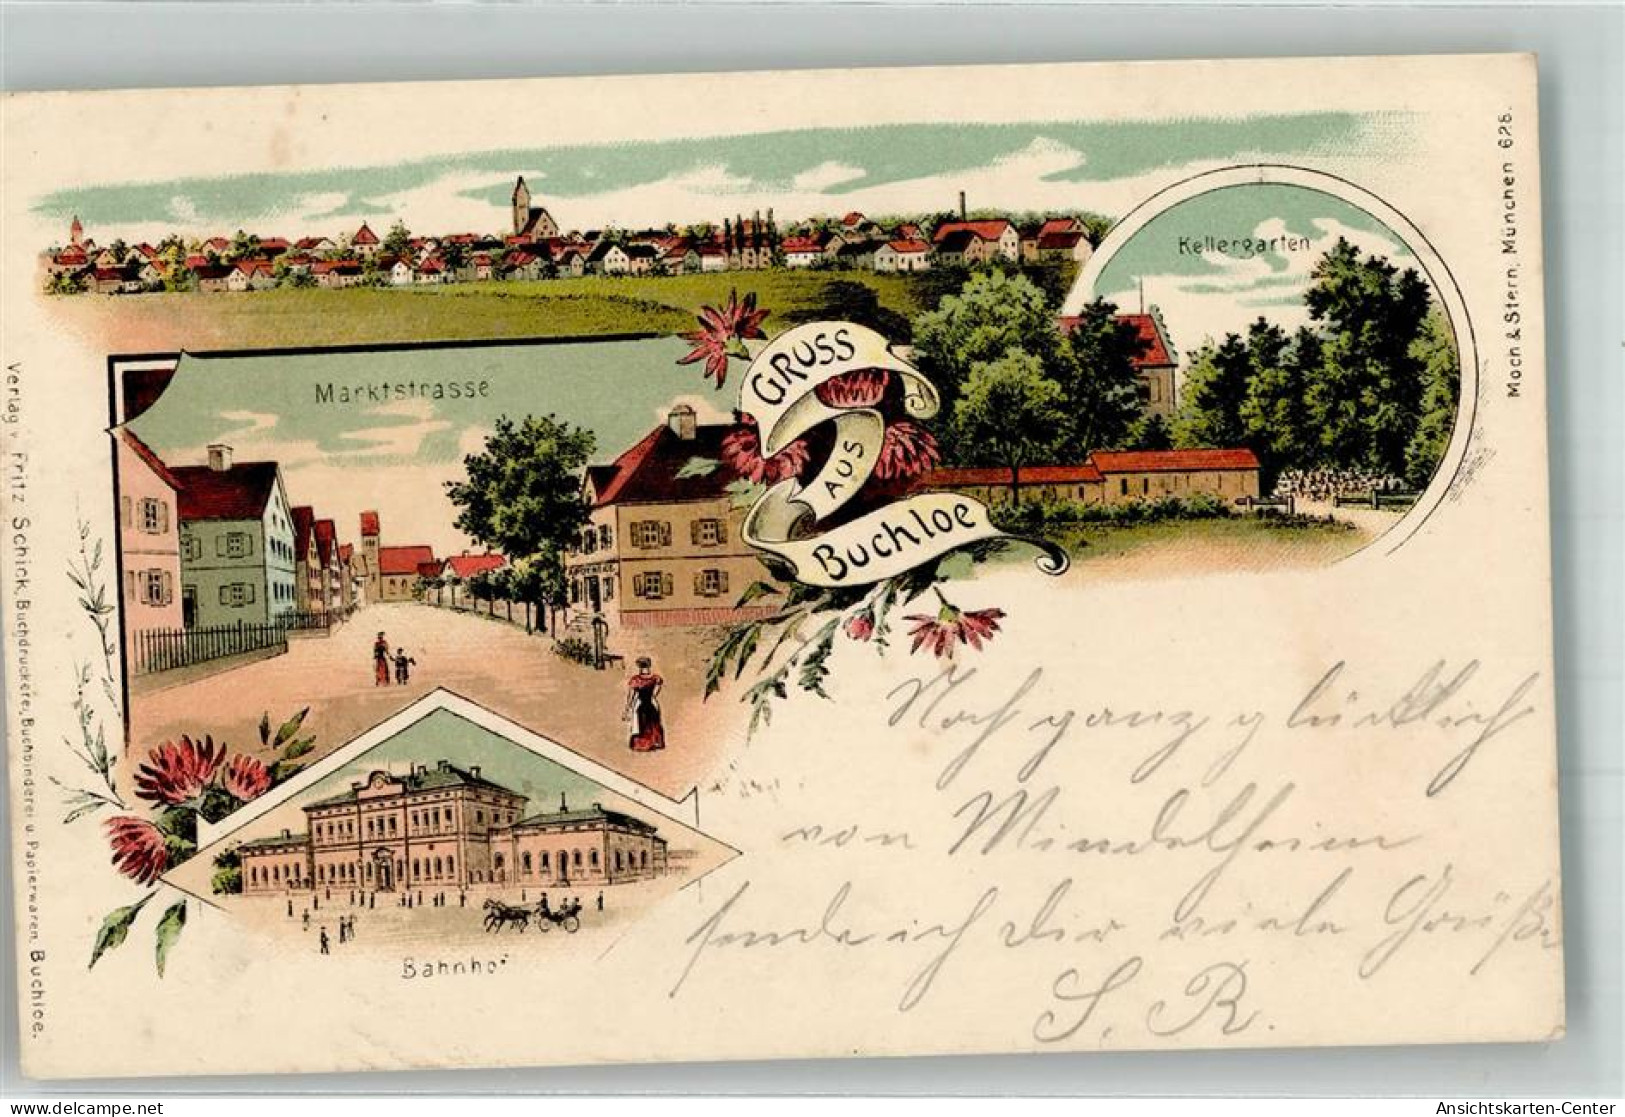 Kellergarten
Marktstrasse
GRUSS
AUS
Buchloe
APOTHEKE
Bahnhof
Noch ganz glücklich
von Mindelheim
sende ich Dir viele Grüße
S. R.
Verlag v. Fritz Schick, Buchdruckerei, Buchbinderei u. Papierwaren, Buchloe.
Moch & Stern, München 628.
Ansichtskarten-Center